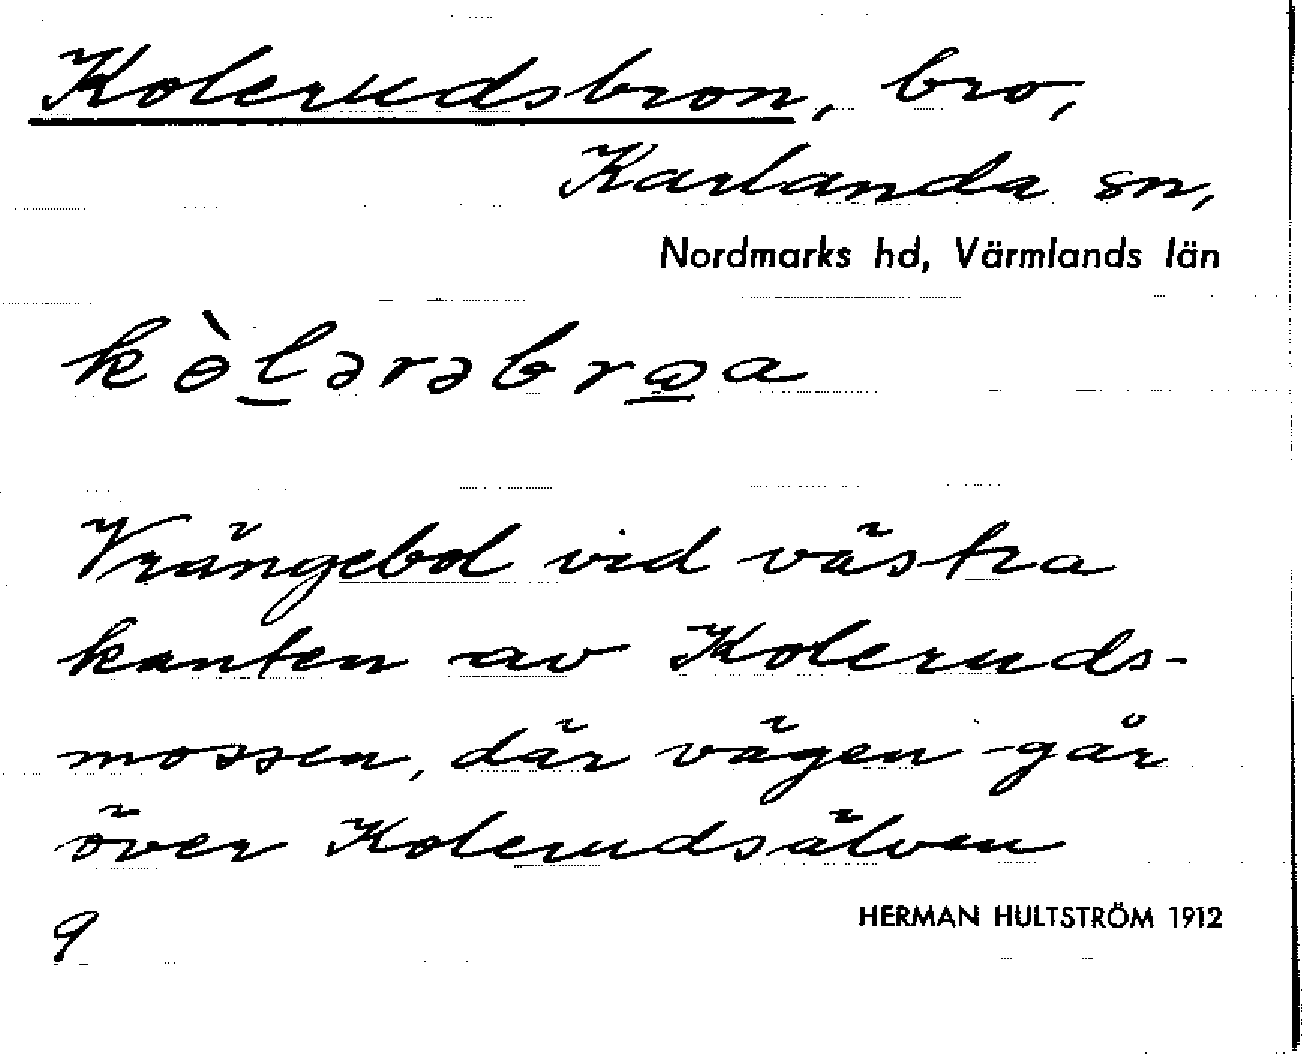 Kolerudsbron, bro,
Karlanda sn,
Nordmarks hd, Värmlands län
kɵ̀l̲ərəbrꙍ̲a
Vrängebol vid västra
kanten av Koleruds-
mossen, där vägen går
över Kolerudsälven
9
HERMAN HULTSTRÖM 1912